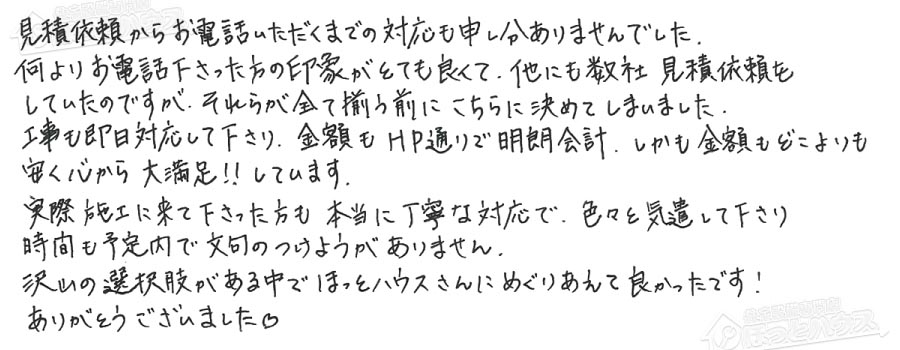 見積依頼からお電話いただくまでの対応も申し分ありませんでした.
何よりお電話下さった方の印象がとても良くて、他にも数社 見積依頼を
していたのですが、それらが全て揃う前にこちらに決めてしまいました.
工事も即日対応して下さり、金額もHP通りで明朗会計、しかも金額もどこよりも
安く心から大満足!!しています.
実際施工に来て下さった方も本当に丁寧な対応で、色々と気遣して下さり
時間も予定内で文句のつけようがありません.
沢山の選択肢がある中でほっとハウスさんにめぐりあえて良かったです!
ありがとうございました♡
ほっとハウス
ほっとハウス